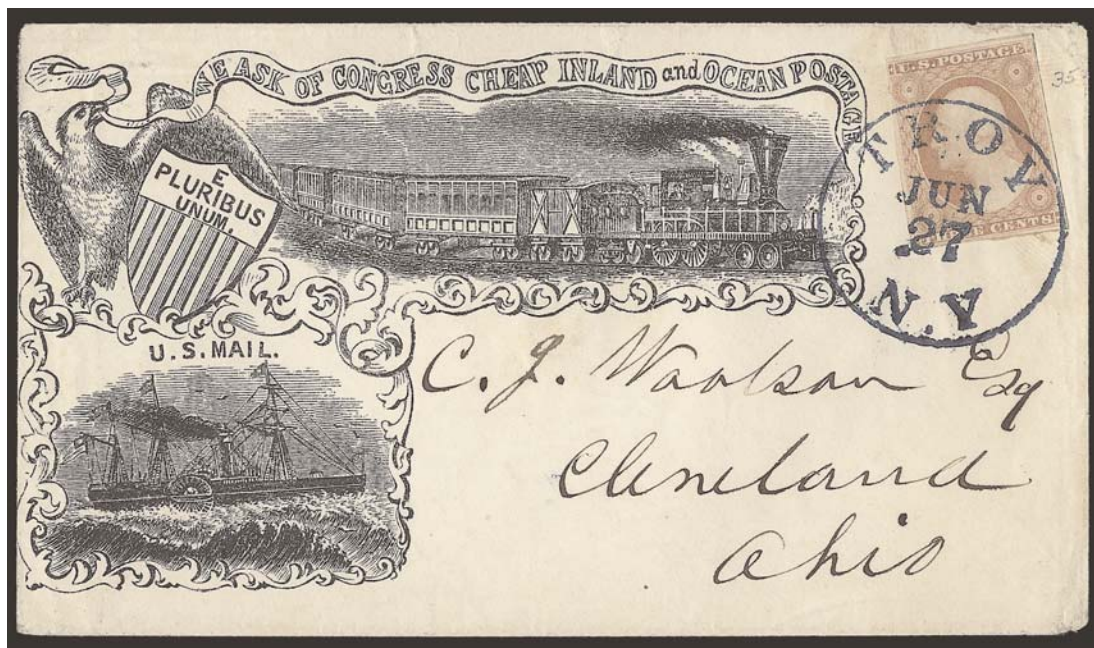 WE ASK OF CONGRESS CHEAP INLAND and OCEAN POSTAGE
E
PLURIBUS
UNUM.
U.S. POSTAGE
E CENTS
353
TROY
JUN
27
N.Y
U.S. MAIL.
C. J. Woolson Esq
Cleveland
Ohio